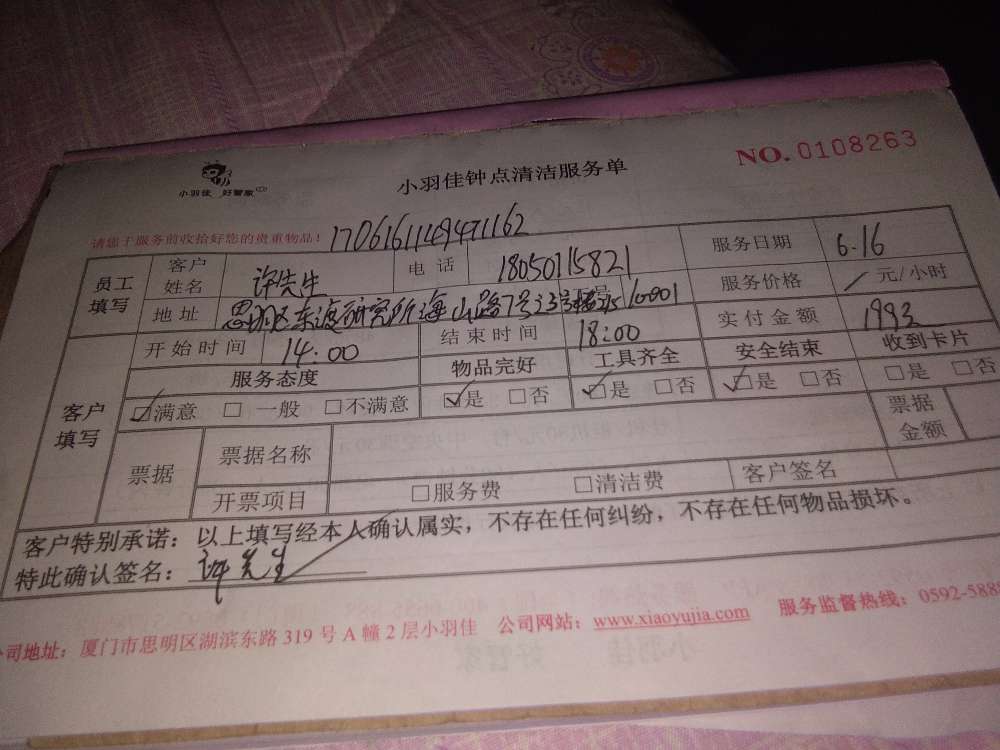 小羽佳 好管家
小羽佳钟点清洁服务单
NO. 0108263
请您于服务前收拾好您的贵重物品!
1706161149471162
员工填写 客户姓名 许先生 电话 18050715821 服务日期 6.16
地址 思明区东渡研究所海山路7号23号楼 服务价格 / 元/小时
客户填写 开始时间 14:00 结束时间 18:00 实付金额
服务态度 物品完好 工具齐全 安全结束 收到卡片
☑满意 □ 一般 □不满意 ☑是 □否 ☑是 □否 ☑是 □否 □是 □否
票据 票据名称 票据金额
开票项目 □服务费 □清洁费 客户签名
客户特别承诺:以上填写经本人确认属实,不存在任何纠纷,不存在任何物品损坏。
特此确认签名: 许先生
公司地址:厦门市思明区湖滨东路 319 号 A 幢 2 层小羽佳 公司网站:www.xiaoyujia.com 服务监督热线:0592-588